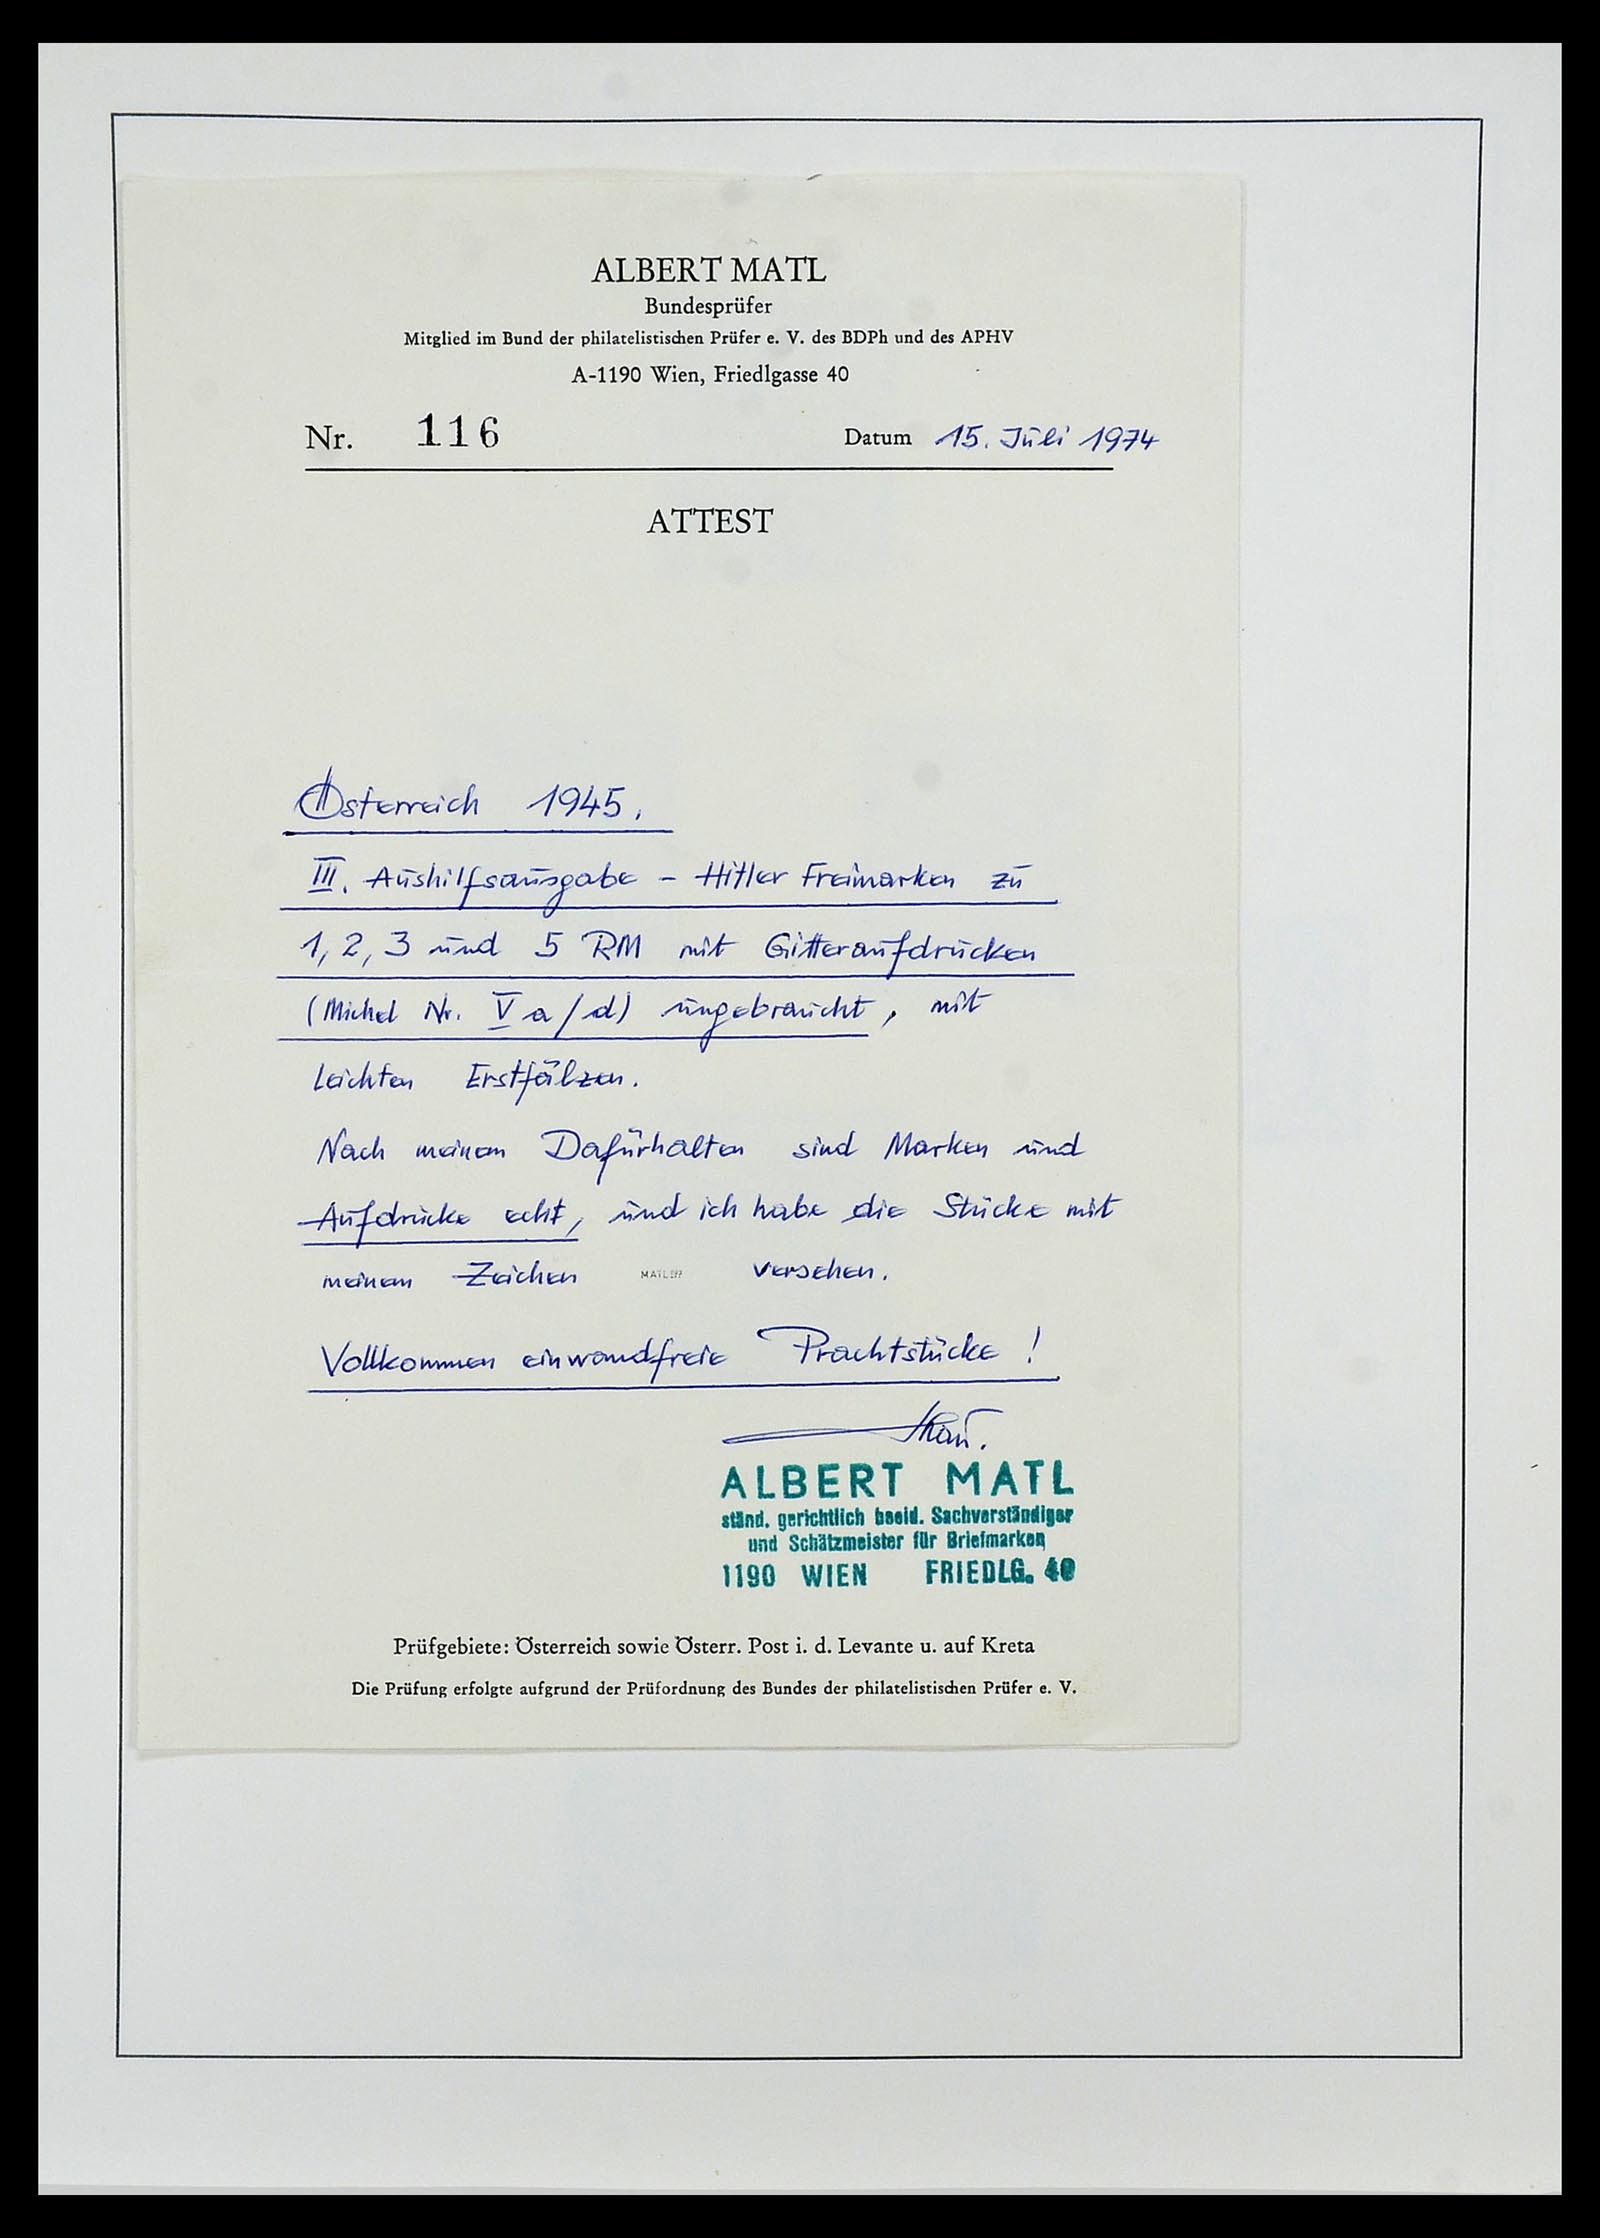 ALBERT MATL
Bundesprüfer
Mitglied im Bund der philatelistischen Prüfer e. V. des BDPh und des APHV
A-1190 Wien, Friedlgasse 40
Nr. 116 Datum 15. Juli 1974
ATTEST
Österreich 1945.
III. Aushilfsausgabe - Hitler Freimarken zu
1, 2, 3 und 5 RM mit Gitteraufdrucken
(Michel Nr. V a/d) ungebraucht, mit
leichten Erstfälzen.
Nach meinem Dafürhalten sind Marken und
Aufdrucke echt, und ich habe die Stücke mit
meinem Zeichen MATL versehen.
Vollkommen einwandfreie Prachtstücke!
ALBERT MATL
ständ. gerichtlich beeid. Sachverständiger
und Schätzmeister für Briefmarken
1190 WIEN FRIEDLG. 40
Prüfgebiete: Österreich sowie Österr. Post i. d. Levante u. auf Kreta
Die Prüfung erfolgte aufgrund der Prüfordnung des Bundes der philatelistischen Prüfer e. V.